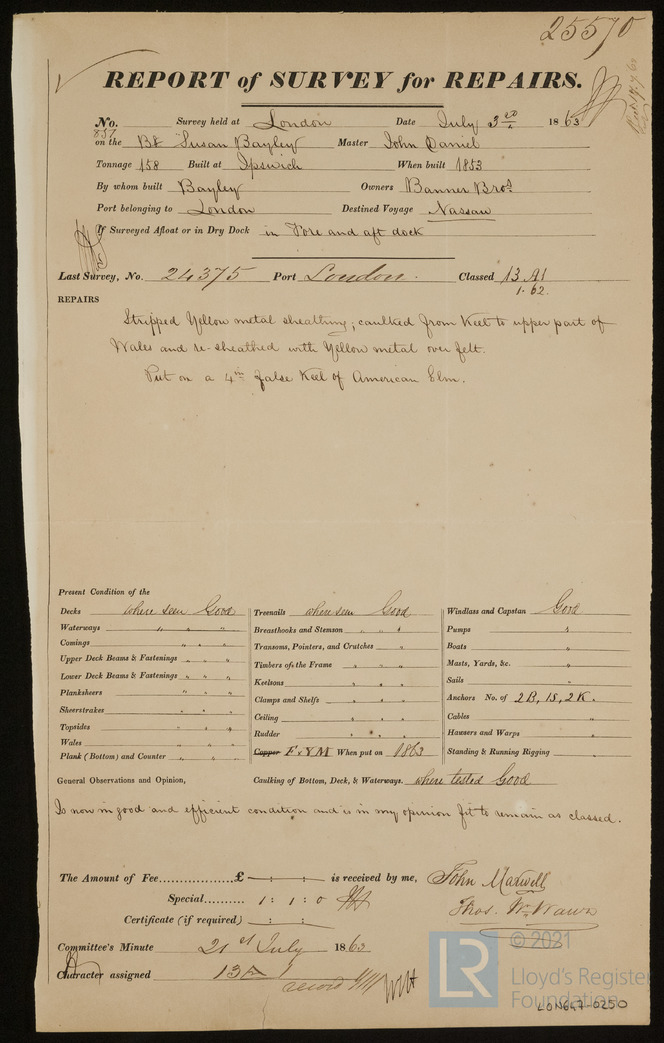 25570
REPORT of SURVEY for REPAIRS.
No. 857 Survey held at London Date July 3rd 1863
on the Bk Susan Bayley Master John Daniel
Tonnage 158 Built at Ipswich When built 1853
By whom built Bayley Owners Banner Bros
Port belonging to London Destined Voyage Nassau
If Surveyed Afloat or in Dry Dock in Fore and aft dock
Last Survey, No. 24375 Port London. Classed 13 A1
1.62.
REPAIRS
Stripped Yellow metal sheathing; caulked from Keel to upper part of
Wales and re-sheathed with Yellow metal over felt.
Put on a 4in false Keel of American Elm.
Present Condition of the
Decks where seen Good
Waterways " " "
Comings " " "
Upper Deck Beams & Fastenings " " "
Lower Deck Beams & Fastenings " " "
Planksheers " " "
Sheerstrakes " " "
Topsides " " "
Wales " " "
Plank (Bottom) and Counter " " "
Treenails where seen Good
Breasthooks and Stemson " " "
Transoms, Pointers, and Crutches " "
Timbers of the Frame " " "
Keelsons " " "
Clamps and Shelfs " " "
Ceiling " " "
Rudder " " "
Copper F & YM When put on 1863
Windlass and Capstan Good
Pumps "
Boats "
Masts, Yards, &c. "
Sails "
Anchors No. of 2B, 1S, 2K.
Cables "
Hawsers and Warps "
Standing & Running Rigging "
General Observations and Opinion, Caulking of Bottom, Deck, & Waterways. where tested Good
Is now in good and efficient condition and is in my opinion fit to remain as classed.
The Amount of Fee.................£ — : — : — is received by me, John Maxwell
Special......... 1 : 1 : 0 Thos. Wm Wawn
Certificate (if required) — : — :
Committee's Minute 21st July 1863
Character assigned 13 A 1
record
© 2021
LR Lloyd's Register
Foundation
LON647-0250